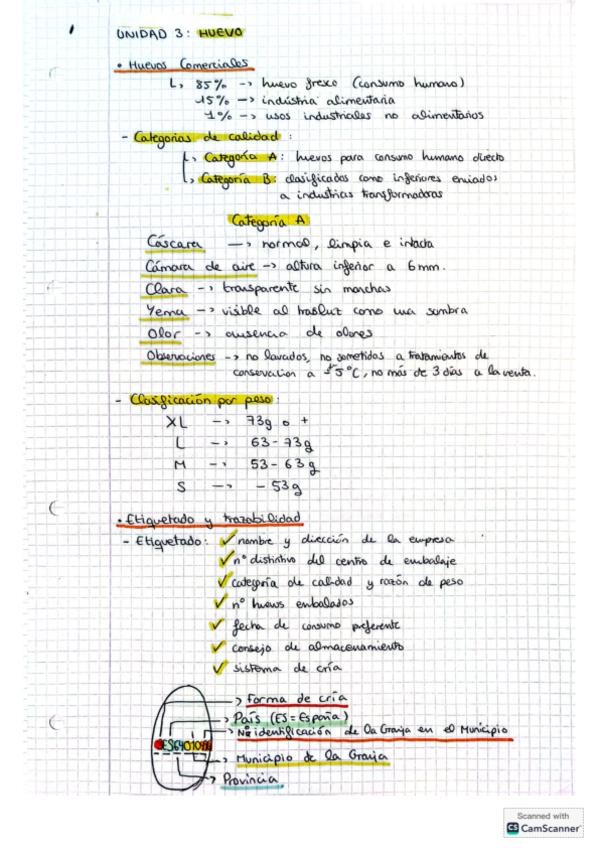 1
UNIDAD 3: HUEVO
• Huevos Comerciales
↳ 85% -> huevo fresco (consumo humano)
15% -> industria alimentaria
1% -> usos industriales no alimentarios
- Categorías de calidad:
↳ Categoría A: huevos para consumo humano directo
↳ Categoría B: clasificados como inferiores enviados
a industrias transformadoras
Categoría A
Cáscara -> normal, limpia e intacta
Cámara de aire -> altura inferior a 6mm.
Clara -> transparente sin manchas
Yema -> visible al trasluz como una sombra
Olor -> ausencia de olores
Observaciones -> no lavados, no sometidos a tratamientos de
conservation a 5°C, no más de 3 días a la venta.
- Clasificación por peso:
XL -> 73g o +
L -> 63-73g
M -> 53-63g
S -> -53g
• Etiquetado y trazabilidad
- Etiquetado: ✓ nombre y dirección de la empresa
✓ nº distintivo del centro de embalaje
✓ categoría de calidad y razón de peso
✓ nº huevos embalados
✓ fecha de consumo preferente
✓ consejo de almacenamiento
✓ sistema de cría
-> Forma de cría
-> País (ES=España)
-> Nº identificación de la Granja en el Municipio
-> Municipio de la Granja
-> Provincia
Scanned with
CS CamScanner